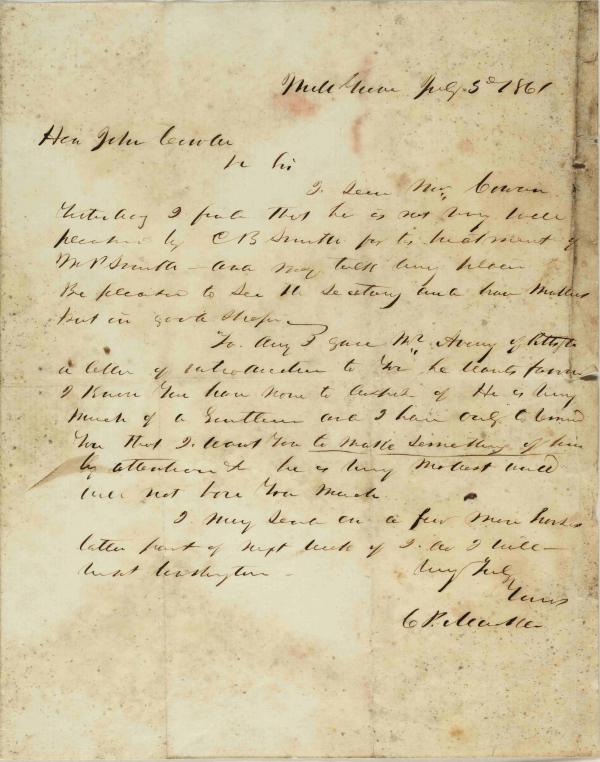 Mill Grove July 3d 1861
Hon John Covode
Dr Sir
I seen Mr. Cowan
yesterday I find that he is not very well
pleased by C B Smith for his treatment of
Mr P Smith and may talk very plain
Be pleased to see the Secretary and have matters
put in good shape
To day I gave Mr Avery of
a letter of introduction to You he wants favor
I know You have none to of He is very
much of a Gentleman and I have only to
You that I want You to make something of him
by attention &c he is very modest and
will not bore You much.
I may send on a few more horses
latter part of next week if I do I will
visit Washington
Very Truly
Yours
C P Markle